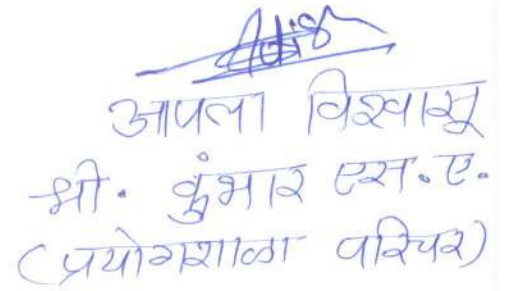 आपला विश्वासू
श्री. कुंभार एस.ए.
(प्रयोगशाळा परिचर)